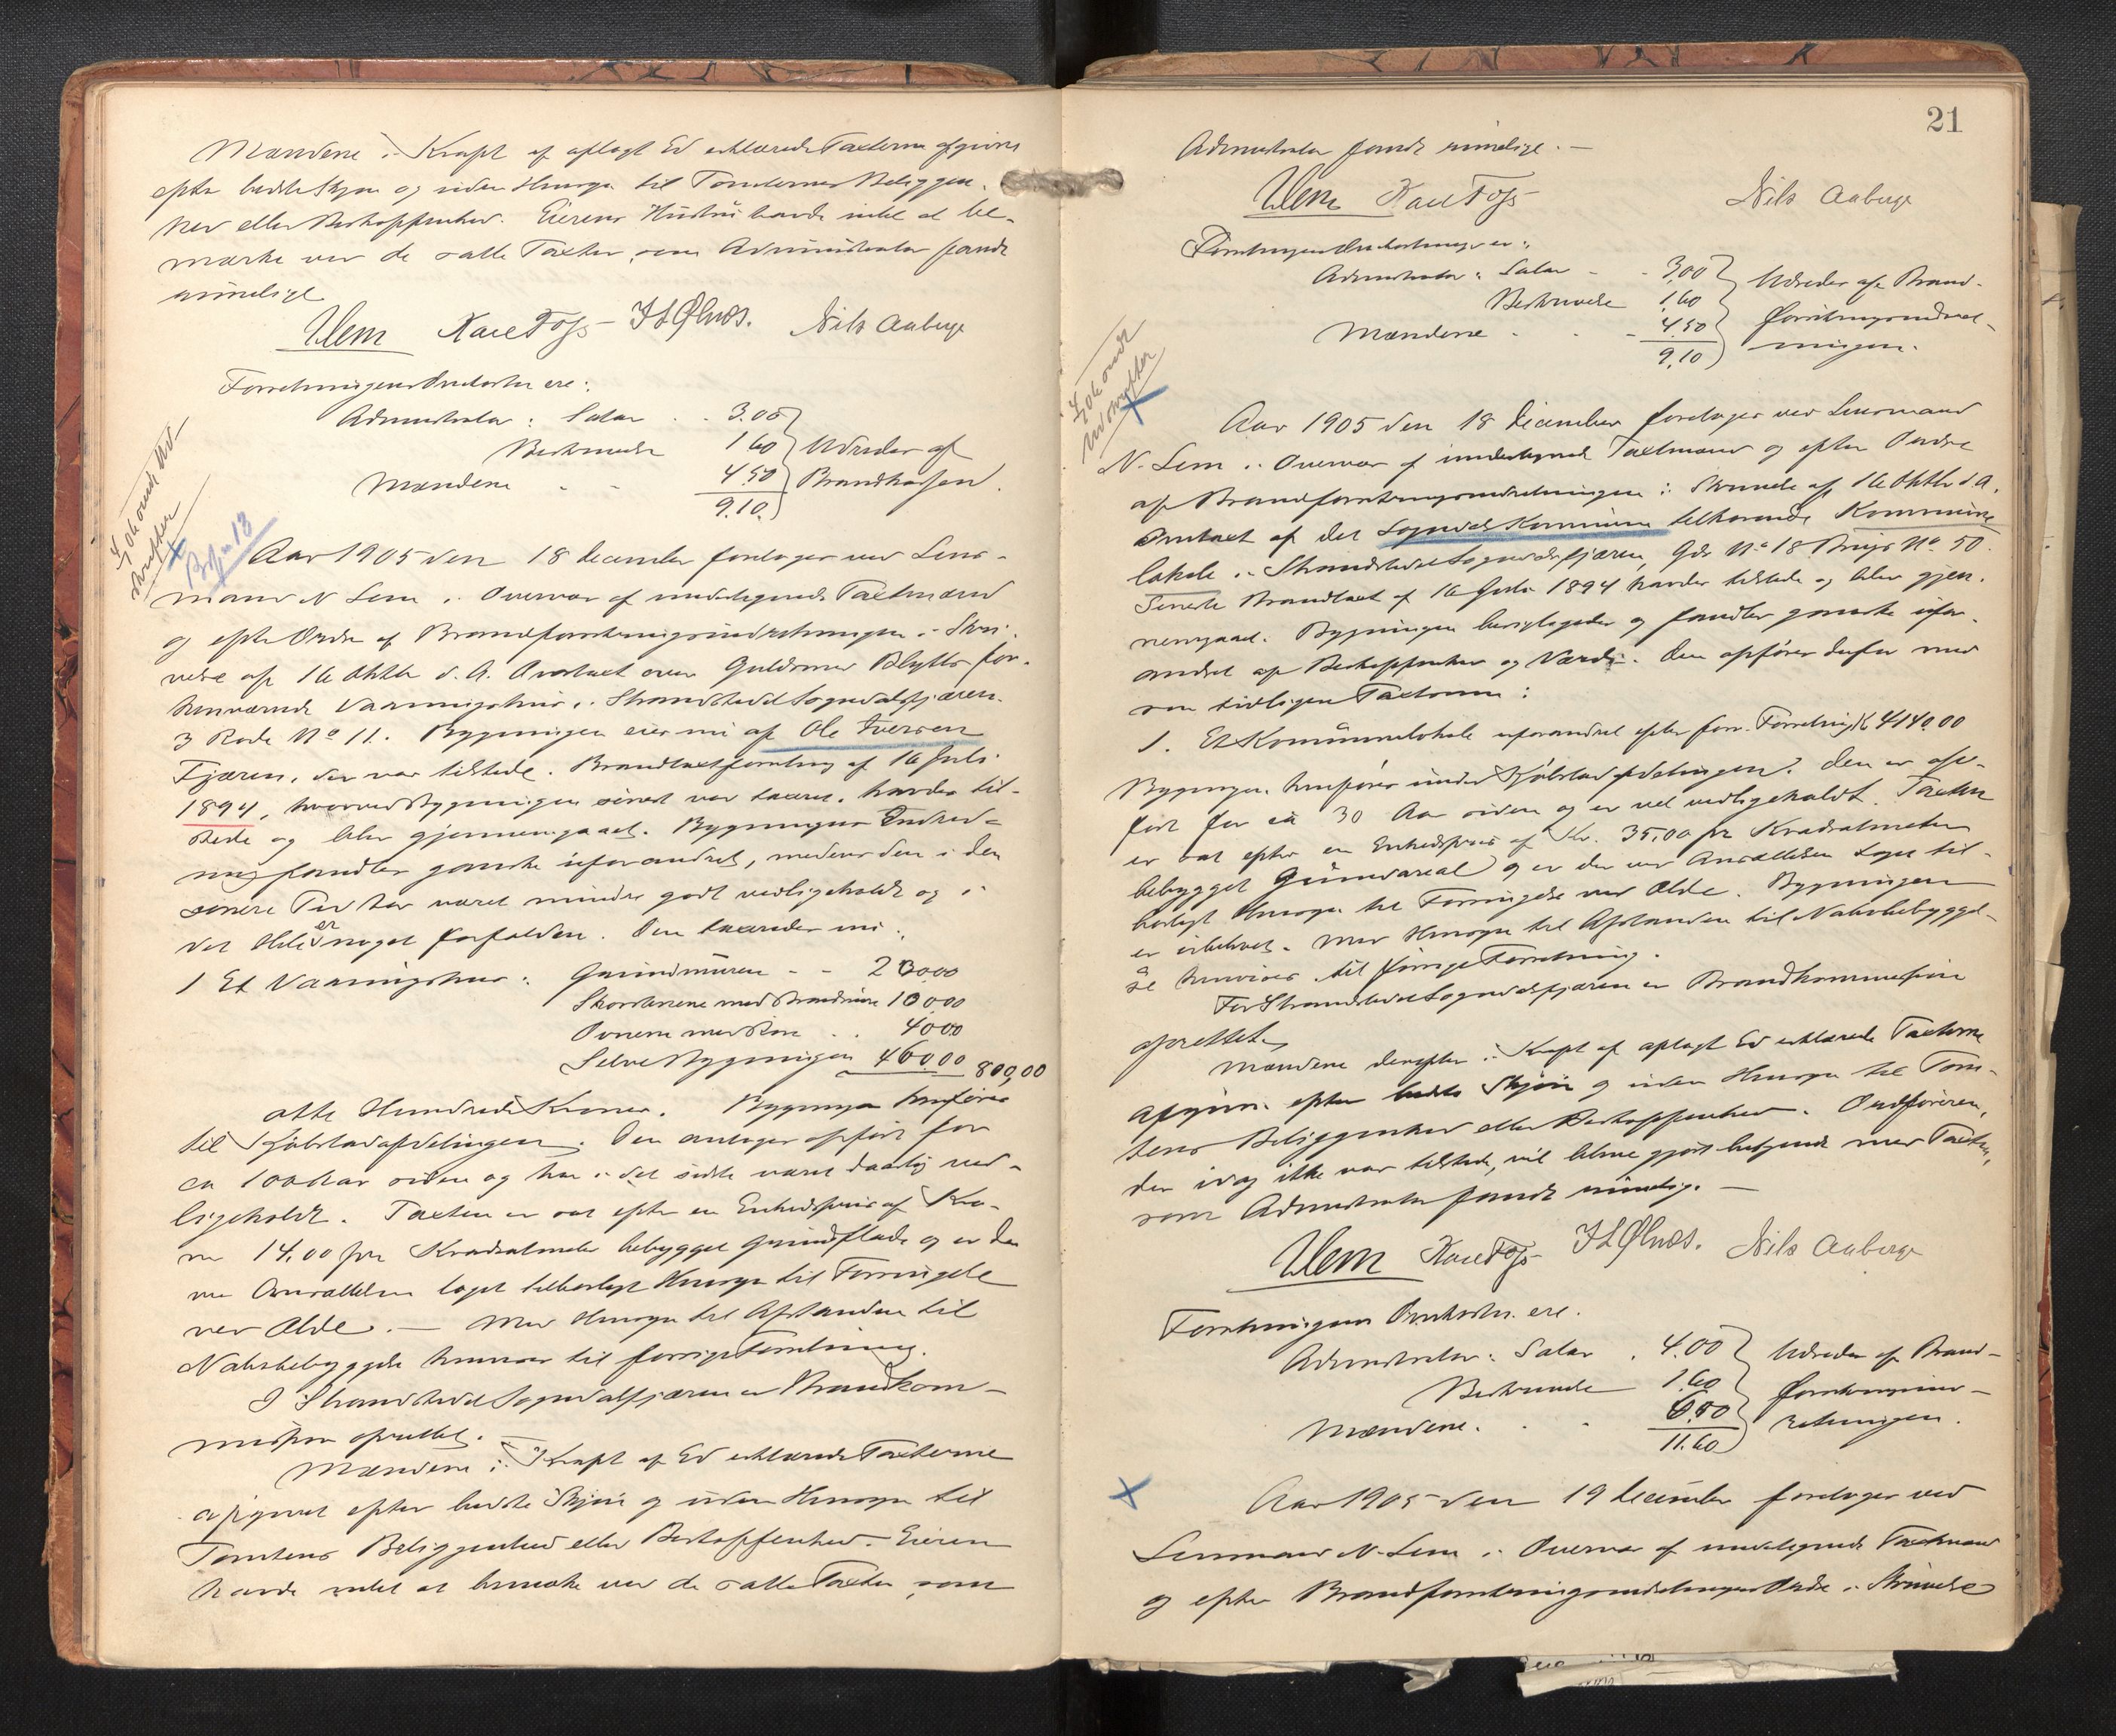 Mændene i Kraft af aflagt Ed erklærede Taxterne afgivne
efter bedste Skjøn og uden Hensyn til Tomternes Beliggen-
hed eller Beskaffenhed. Eierens Hustru havde intet at be-
mærke ved de satte Taxter, som Administrator fandt
rimelige
NLem Kare Foss JLØlnæs. Nils Aaberge
Forretningens Omkostn ere:
Administrator: Salær 3.00
Beskrivelse 1 60 Udredes af
Mændene 4.50 Brandkassen.
9.10.
2 gode ord Ud-
skrifter
Bof. n 13
Aar 1905 den 18 December foretoges ved Lens-
mand N Lem i Overvær af undertegnede Taxtmænd
og efter Ordre af Brandforsikringsindretningen i Skri-
velse af 16 Oktbr d. A. Omtaxt over Guldsmed Blytts for-
henværende Vaaningshus i Strandstedet Sogndalsfjæren.
3 Rode No 11. Bygningen eies nu af Ole Iversen
Fjæren, der var tilstede. Brandtaxtforretning af 16 Juli
1894, hvorved Bygningen sidst var taxeret, havdes til-
stede og blev gjennemgaaet. Bygningens Indred-
ning fandtes ganske uforandret, medens den i den
senere Tid har været mindre godt vedligeholdt og i
det Hele er noget forfalden. Den taxeredes nu:
1 Et Vaaningshus: Grundmuren - - 20000
Skorstenene med Brandmure 10000
Ovnene med Rør . . 4000
Selve Bygningen 46000 800,00
otte Hundrede Kroner. Bygningen henføres
til Kjøbstadafdelingen. Den antages opført for
ca 100 Aar siden og har i det sidste været daarlig ved-
ligeholdt. Taxten er sat efter en Enhedspris af Kro-
ner 14.00 pr Kvadratmeter bebygget Grundflade og er der
ved Ansættelsen taget tilbørligt Hensyn til Forringelse
ved Ælde. — Med Hensyn til Afstanden til
Nabobebyggelse henvises til forrige Forretning.
I Strandstedet Sogndalsfjæren er Brandkom-
mission oprettet. —
Mændene i Kraft af Ed erklærede Taxterne
afgivne efter bedste Skjøn og uden Hensyn til
Tomtens Beliggenhed eller Beskaffenhed. Eieren
havde intet at bemærke ved de satte Taxter, som
21
Administrator fandt rimelige. —
NLem Kare Foss Nils Aaberge
Forretningens Omkostninger er:
Administrator: Salær - - 3,00 Udredes af Brand-
Beskrivelse 1,60 forsikringsindret-
Mændene - - 4.50 ningen.
9,10
2 gode ord
Udskrifter
Aar 1905 den 18 December foretoges ved Lensmand
N. Lem i Overvær af undertegnede Taxtmænd og efter Ordre
af Brandforsikringsindretningen i Skrivelse af 16 Oktbr d A.
Omtaxt af det Sogndals Kommune tilhørende Kommune
lokale i Strandstedet Sogndalsfjæren, Gds No 18 Brugs No 50.
Seneste Brandtaxt af 16 Juli 1894 havdes tilstede og blev gjen-
nemgaaet. Bygningen besigtigedes og fandtes ganske ufor-
andret af Beskaffenhed og Værdi. Den opføres derfor med
den tidligere Taxtsum:
1. Et Kommunelokale uforandret efter forr. Forretning Kr 4140.00
Bygningen henføres under Kjøbstadafdelingen. Den er op-
ført for ca 30 Aar siden og er vel vedligeholdt. Taxten
er sat efter en Enhedspris af Kr. 35,00 pr Kvadratmeter
bebygget Grundareal og er der ved Ansættelsen taget til-
børligt Hensyn til Forringelse ved Ælde. Bygningen
er ubeboet. Med Hensyn til Afstanden til Nabobebyggel-
se henvises til forrige Forretning.
For Strandstedet Sogndalsfjæren er Brandkommission
oprettet.
Mændene derefter i Kraft af aflagt Ed erklærede Taxterne
afgivne efter bedste Skjøn og uden Hensyn til Tom-
tens Beliggenhed eller Beskaffenhed. Ordføreren,
der idag ikke var tilstede, vil blive gjort bekjendt med Taxten,
som Administrator fandt rimelig. —
NLem Kare Foss JLØlnæs. Nils Aaberge
Forretningens Omkostn. ere.
Administrator: Salær . 4.00 Udredes af Brand-
Beskrivelse 1.60 forsikringsind-
Mændene. . - 6.00 retningen.
11.60
Aar 1905 den 19 December foretoges ved
Lensmand N. Lem i Overvær af undertegnede Taxtmænd
og efter Brandforsikringsindretningens Ordre i Skrivelse